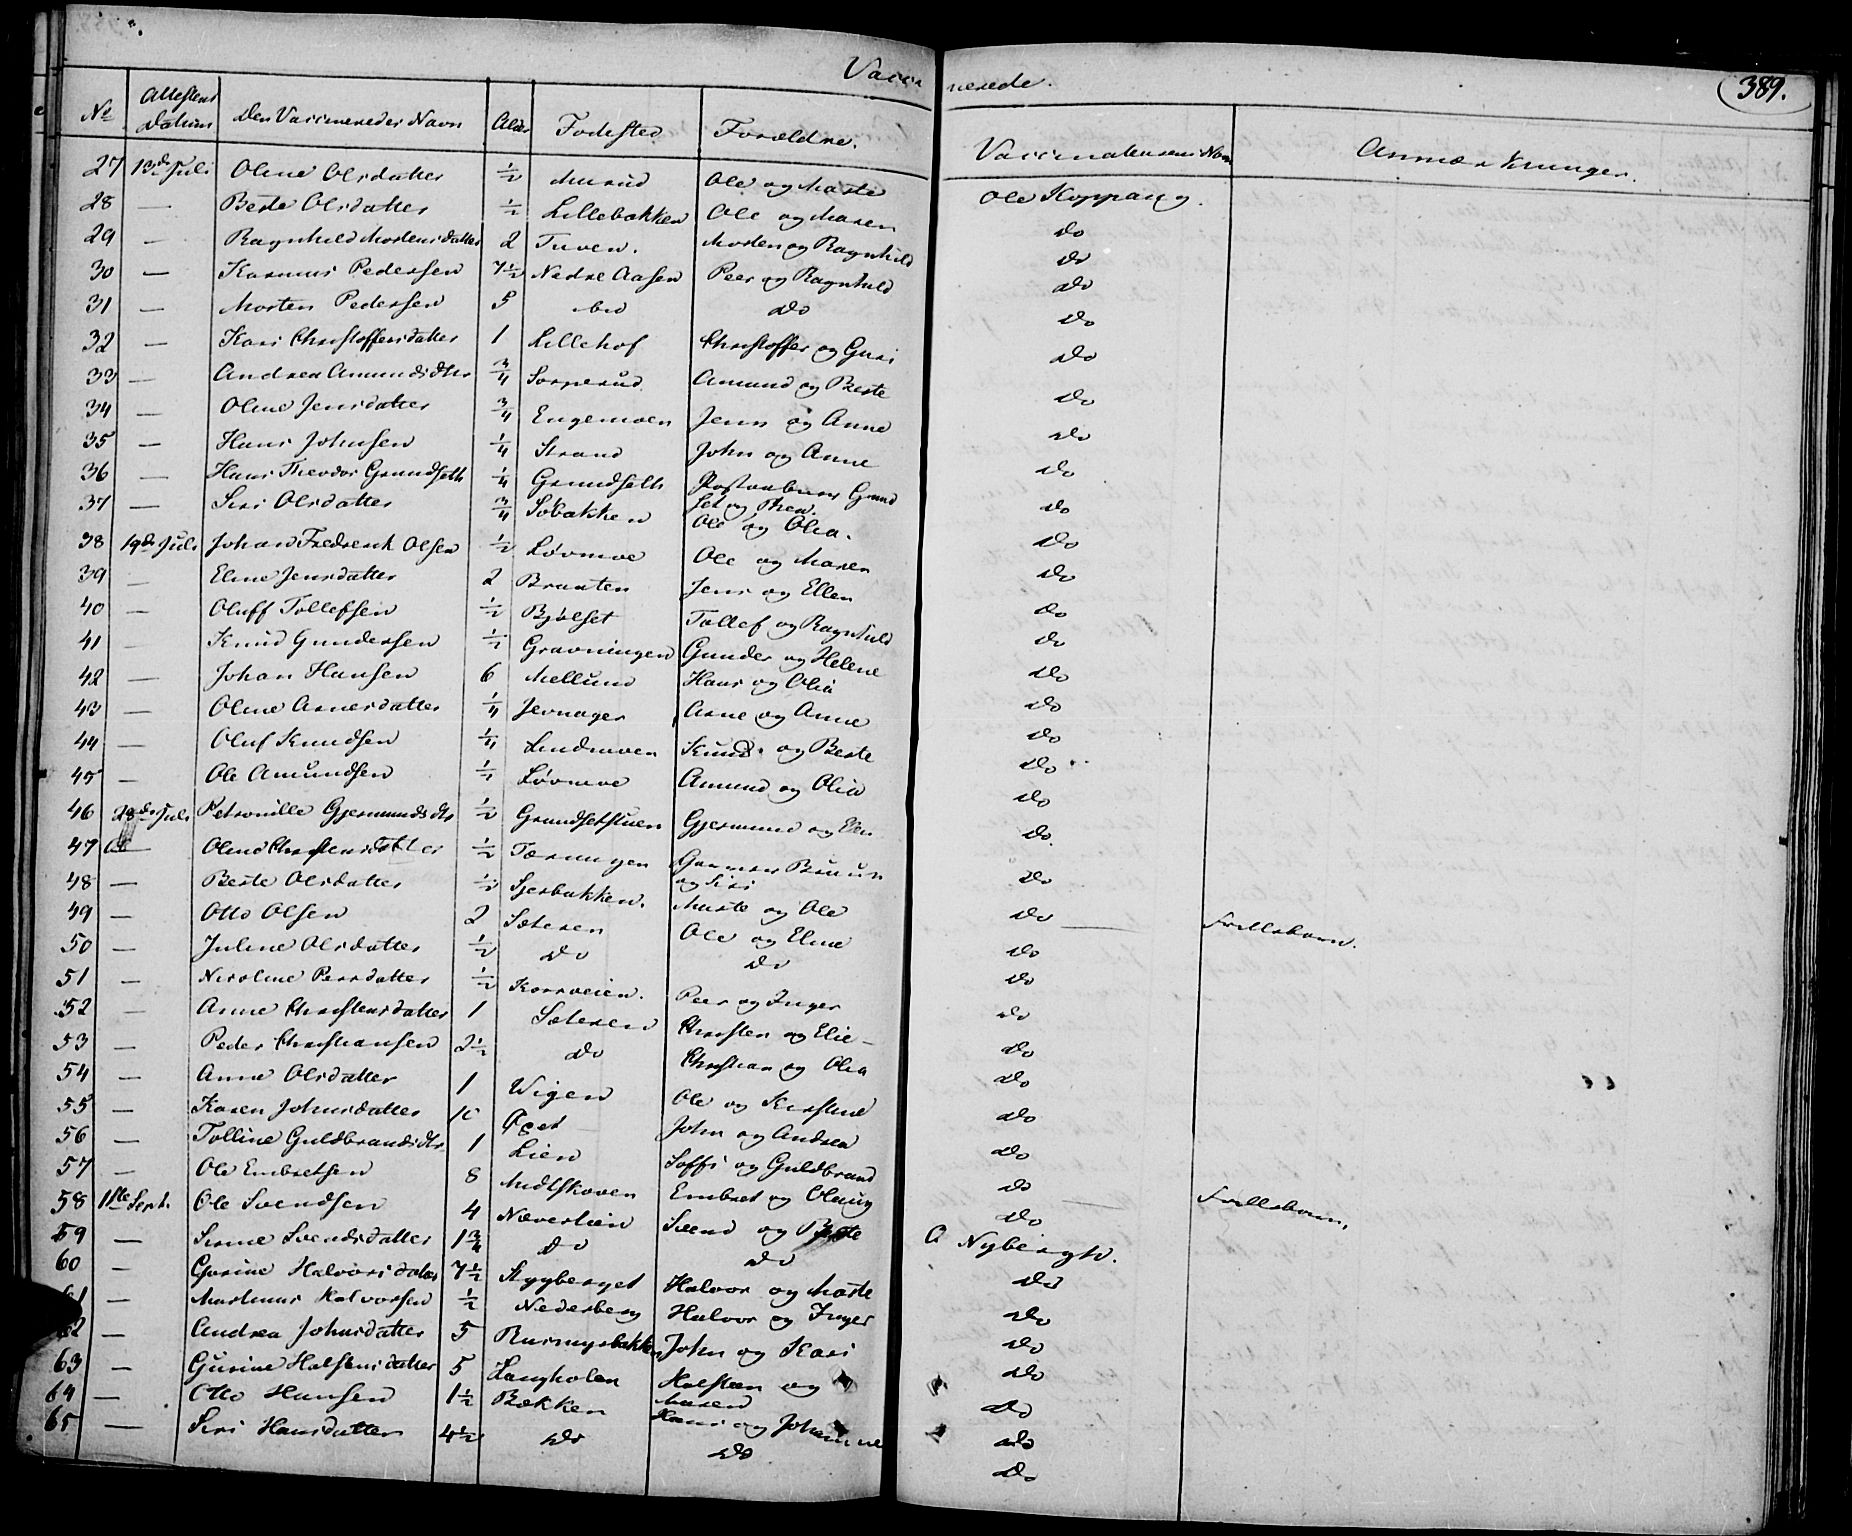 Vaccinerede.
389.
No Attestens Datum Den Vaccineredes Navn Alder Fødested Forældre. Vaccinateurens Navn Anmærkninger.
27 13de Juli Oline Olsdatter 1/2 Ole og Marte Ole Koppang.
28 — Berte Olsdatter 1/2 Lillebakken Ole og Maren Do
29 — Ragnhild Mortensdatter 2 Tuven. Morten og Ragnhild Do
30 — Rasmus Pedersen 7 1/2 Nedre Aasen Peer og Ragnhild Do
31 — Morten Pedersen 5 Do Do
32 — Kari Christoffersdatter 1 Lillehof Christoffer og Guri Do
33 — Andrea Amundsdtr 3/4 Sorperud Amund og Berte Do
34 — Oline Jensdatter 3/4 Engemoen Jens og Anne Do
35 — Hans Johnsen 1/4 Strand John og Anne Do
36 — Hans Theodor Grundseth 1/4 Grundseth Postaabner Grund
set og Thea. Do
37 — Siri Olsdatter 3/4 Søbakken Ole og Olea. Do
38 19de Juli Johan Fredrerik Olsen 1/2 Løvmoe Ole og Maren Do
39 — Eline Jensdatter 2 Braaten Jens og Ellen Do
40 — Oluff Tollefsen 1/2 Bjølset Tollef og Ragnhild Do
41 — Knud Gundersen 1/2 Gravningen Gunder og Helene Do
42 — Johan Hansen 6 Mellund Hans og Olia Do
43 — Oline Arnesdatter 1/4 Jevnager Arne og Anne Do
44 — Oluf Knudsen 1/4 Lindmoen Knud og Berte Do
45 — Ole Amundsen 1/4 Løvmoe Amund og Olia Do
46 28de Juli Petronille Gjermundsdtr 1/2 Grundsetstuen Gjermund og Do
47 — Christensdatter 1/2 Do
og Siri
48 — Berte Olsdatter 1/2 Marte og Ole Do
49 — Otto Olsen 2 Sæteren Ole og Eline Do — Frillebarn.
50 — Juline Olsdatter 1/2 Do Do Do
51 — Nicoline Persdatter 1/2 Korsveien. Peer og Inger Do
52 — Anne Christensdatter 1 Sæteren Christen og Elie Do
53 — Peder Christiansen 2 1/2 Do Christian og Olea Do
54 — Anne Olsdatter 1 Wigen Ole og Kirstine Do
55 — Karen Johnsdatter 10 John og Andrea Do
56 — Tolline Guldbrandsdtr 1 Lien Soffi og Guldbrand Do
57 — Ole Embretsen 8 Midtskoven Embret og Do — Frillebarn,
58 1ste Sept. Ole Svendsen 4 Næverlien Svend og Berte Do
59 — Sirine Svendsdatter 1 3/4 Do Do O Nybergh.
60 — Gurine Halvorsdatter 7 1/2 Stygberget Halvor og Marte Do
61 — Martinus Halvorsen 1/2 Nederberg Halvor og Inger Do
62 — Andrea Johnsdatter 5 John og Kari Do
63 — Gurine Halstensdatter 5 Langholen Halsten og
Maren Do
64 — Otto Hansen 1 1/2 Bækken Hans og Johanne Do
65 — Siri Hansdatter 4 1/2 Do Do Do
Do